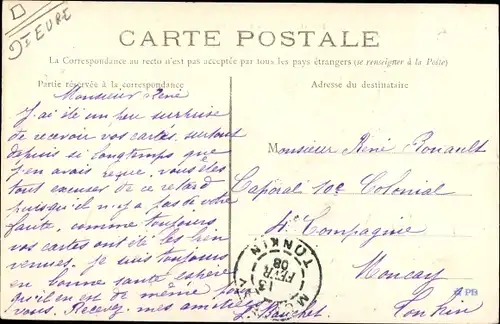 Dt EURE
CARTE POSTALE
La Correspondance au recto n'est pas acceptée par tous les pays étrangers (se renseigner à la Poste)
Partie réservée à la correspondance
Adresse du destinataire
Monsieur René
J'ai été un peu surprise
de recevoir vos cartes surtout
depuis si longtemps que
j'en avais reçue. vous êtes
tout excuser de ce retard
puisqu'il n'y a pas de votre
faute, comme toujours
vos cartes ont été les bien
venues. je suis toujours
en bonne santé espère
qu'il en est de même pour
vous. Recevez mes amitiés
Monsieur René Rouault
Caporal 10e Colonial
4e Compagnie
Moncay
Tonkin
TONKIN
13
FEVR
08
PB